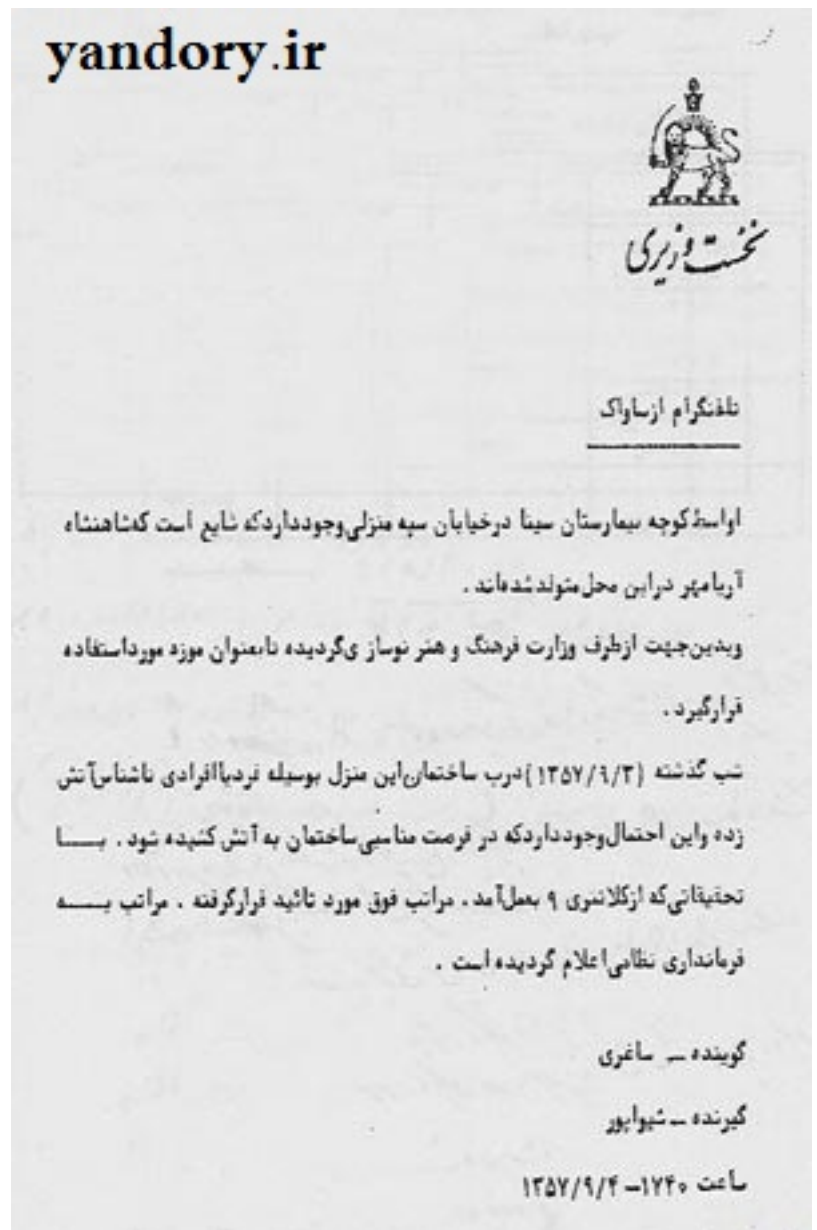 yandory.ir
نخست وزیری
تلفنگرام ازساواک
اواسط کوچه بیمارستان سینا درخیابان سپه منزلی وجودداردکه شایع است که شاهنشاه
آریامهر دراین محل متولد شده‌اند .
وبدین جهت ازطرف وزارت فرهنگ و هنر نوسازی گردیده تابعنوان موزه مورداستفاده
قرارگیرد .
شب گذشته (۱۳۵۷/۹/۳) درب ساختمان این منزل بوسیله فردیاافرادی ناشناس آتش
زده واین احتمال وجودداردکه در فرصت مناسبی ساختمان به آتش کشیده شود . بــا
تحقیقاتی که ازکلانتری ۹ بعمل آمد . مراتب فوق مورد تائید قرارگرفته . مراتب بــه
فرمانداری نظامی اعلام گردیده است .
گوینده ــ ساغری
گیرنده ــ شیواپور
ساعت ۱۷۴۰ــ ۱۳۵۷/۹/۴